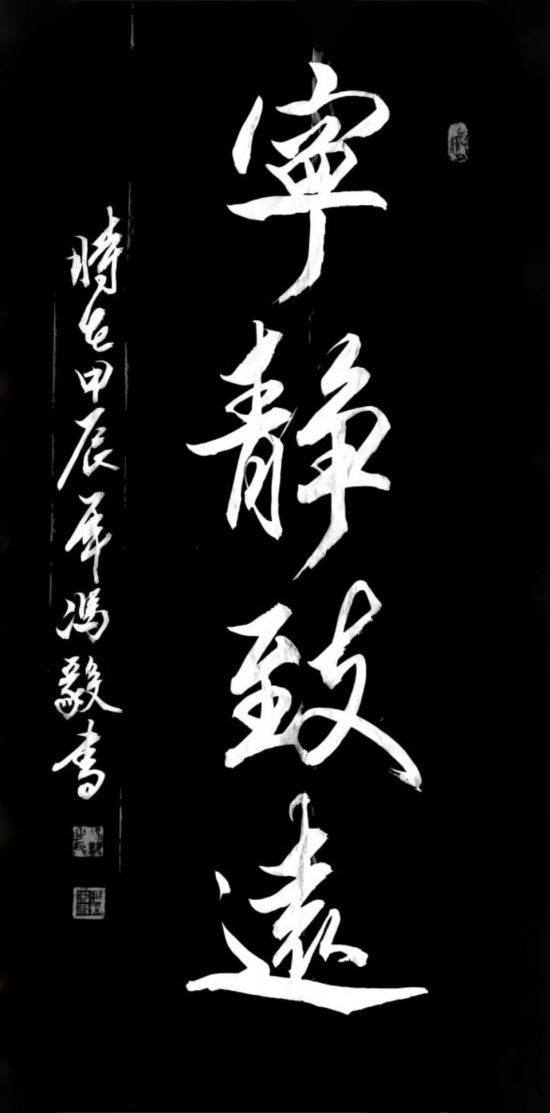 寧静致遠
時在甲辰年馮毅書